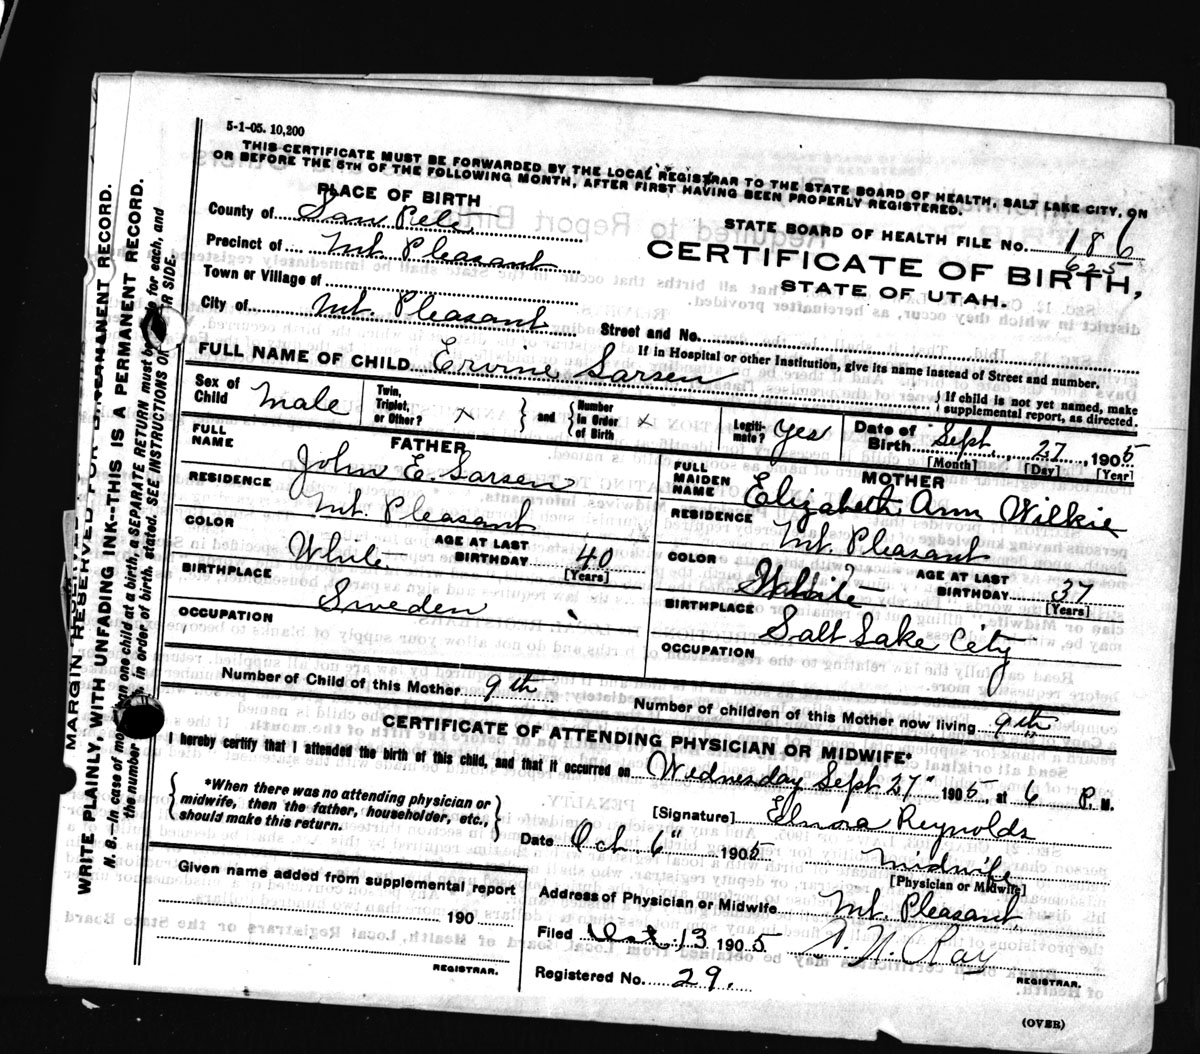 5-1-05. 10,200
THIS CERTIFICATE MUST BE FORWARDED BY THE LOCAL REGISTRAR TO THE STATE BOARD OF HEALTH, SALT LAKE CITY, ON
OR BEFORE THE 5TH OF THE FOLLOWING MONTH, AFTER FIRST HAVING BEEN PROPERLY REGISTERED.
PLACE OF BIRTH
County of San Pete
Precinct of Mt. Pleasant
Town or Village of
City of Mt. Pleasant
STATE BOARD OF HEALTH FILE NO. 186
625
CERTIFICATE OF BIRTH,
STATE OF UTAH.
Street and No.
If in Hospital or other Institution, give its name instead of Street and number.
FULL NAME OF CHILD Ervine Larsen
If child is not yet named, make supplemental report, as directed.
Sex of Child Male
Twin, Triplet, or Other? x
and Number in Order of Birth x
Legitimate? Yes
Date of Birth Sept. 27, 1905
[Month] [Day] [Year]
FATHER
FULL NAME John E. Larsen
RESIDENCE Mt. Pleasant
COLOR White
AGE AT LAST BIRTHDAY 40
[Years]
BIRTHPLACE Sweden
OCCUPATION
MOTHER
FULL MAIDEN NAME Elizabeth Ann Wilkie
RESIDENCE Mt. Pleasant
COLOR White
AGE AT LAST BIRTHDAY 37
[Years]
BIRTHPLACE Salt Lake City
OCCUPATION
Number of Child of this Mother 9th
Number of children of this Mother now living 9th
CERTIFICATE OF ATTENDING PHYSICIAN OR MIDWIFE*
I hereby certify that I attended the birth of this child, and that it occurred on Wednesday Sept 27" 1905, at 6 P. M.
*When there was no attending physician or midwife, then the father, householder, etc., should make this return.
[Signature] Elnora Reynolds
Date Oct 6" 1905
midwife
[Physician or Midwife]
Given name added from supplemental report
190
REGISTRAR.
Address of Physician or Midwife Mt. Pleasant
Filed Oct 13 1905 Ray
REGISTRAR.
Registered No. 29.
(OVER)
MARGIN RESERVED FOR PERMANENT RECORD.
WRITE PLAINLY, WITH UNFADING INK--THIS IS A PERMANENT RECORD.
N.B.--In case of more than one child at a birth, a SEPARATE RETURN must be made for each, and
the number in order of birth, stated. SEE INSTRUCTIONS ON OTHER SIDE.